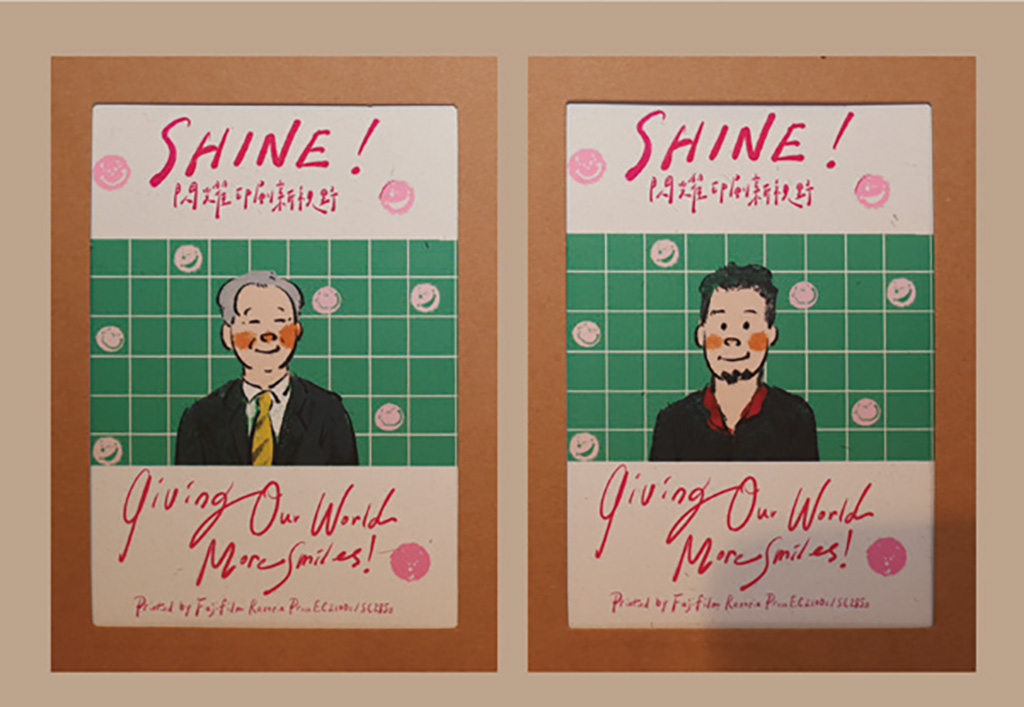 SHINE!
閃耀印刷新視野
Giving Our World
More Smiles!
Printed by Fujifilm Revoria Press
SHINE!
閃耀印刷新視野
Giving Our World
More Smiles!
Printed by Fujifilm Revoria Press